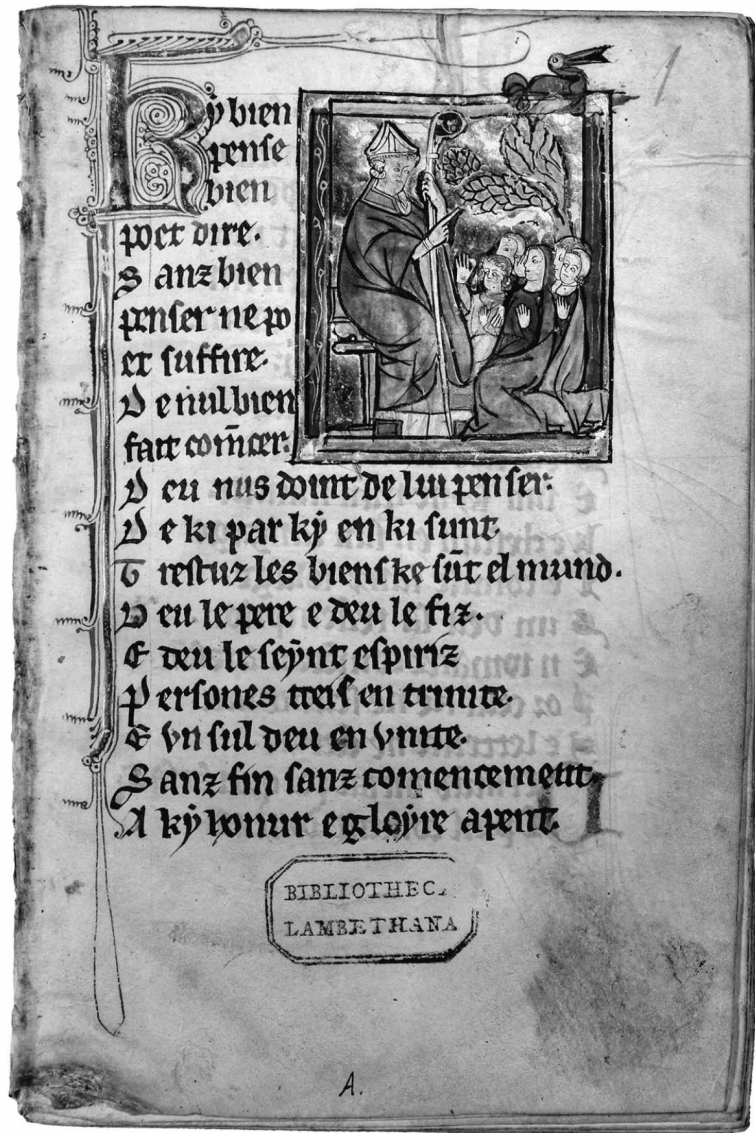 Ky bien
pense
bien
poet dire.
Sanz bien
penser ne po
et suffire.
De nul bien
fait com̄cer.
Deu nus doint de lui penser.
De ki par kẏ en ki sunt
Trestuz les biens ke sūt el mund.
Deu le pere e deu le fiz.
E deu le seẏnt espiriz
Persones treis en trinite.
E vn sul deu en vnite.
Sanz fin sanz comencement,
A kẏ honur e gloẏre apent.
BIBLIOTHEC
LAMBETHANA
A.
1